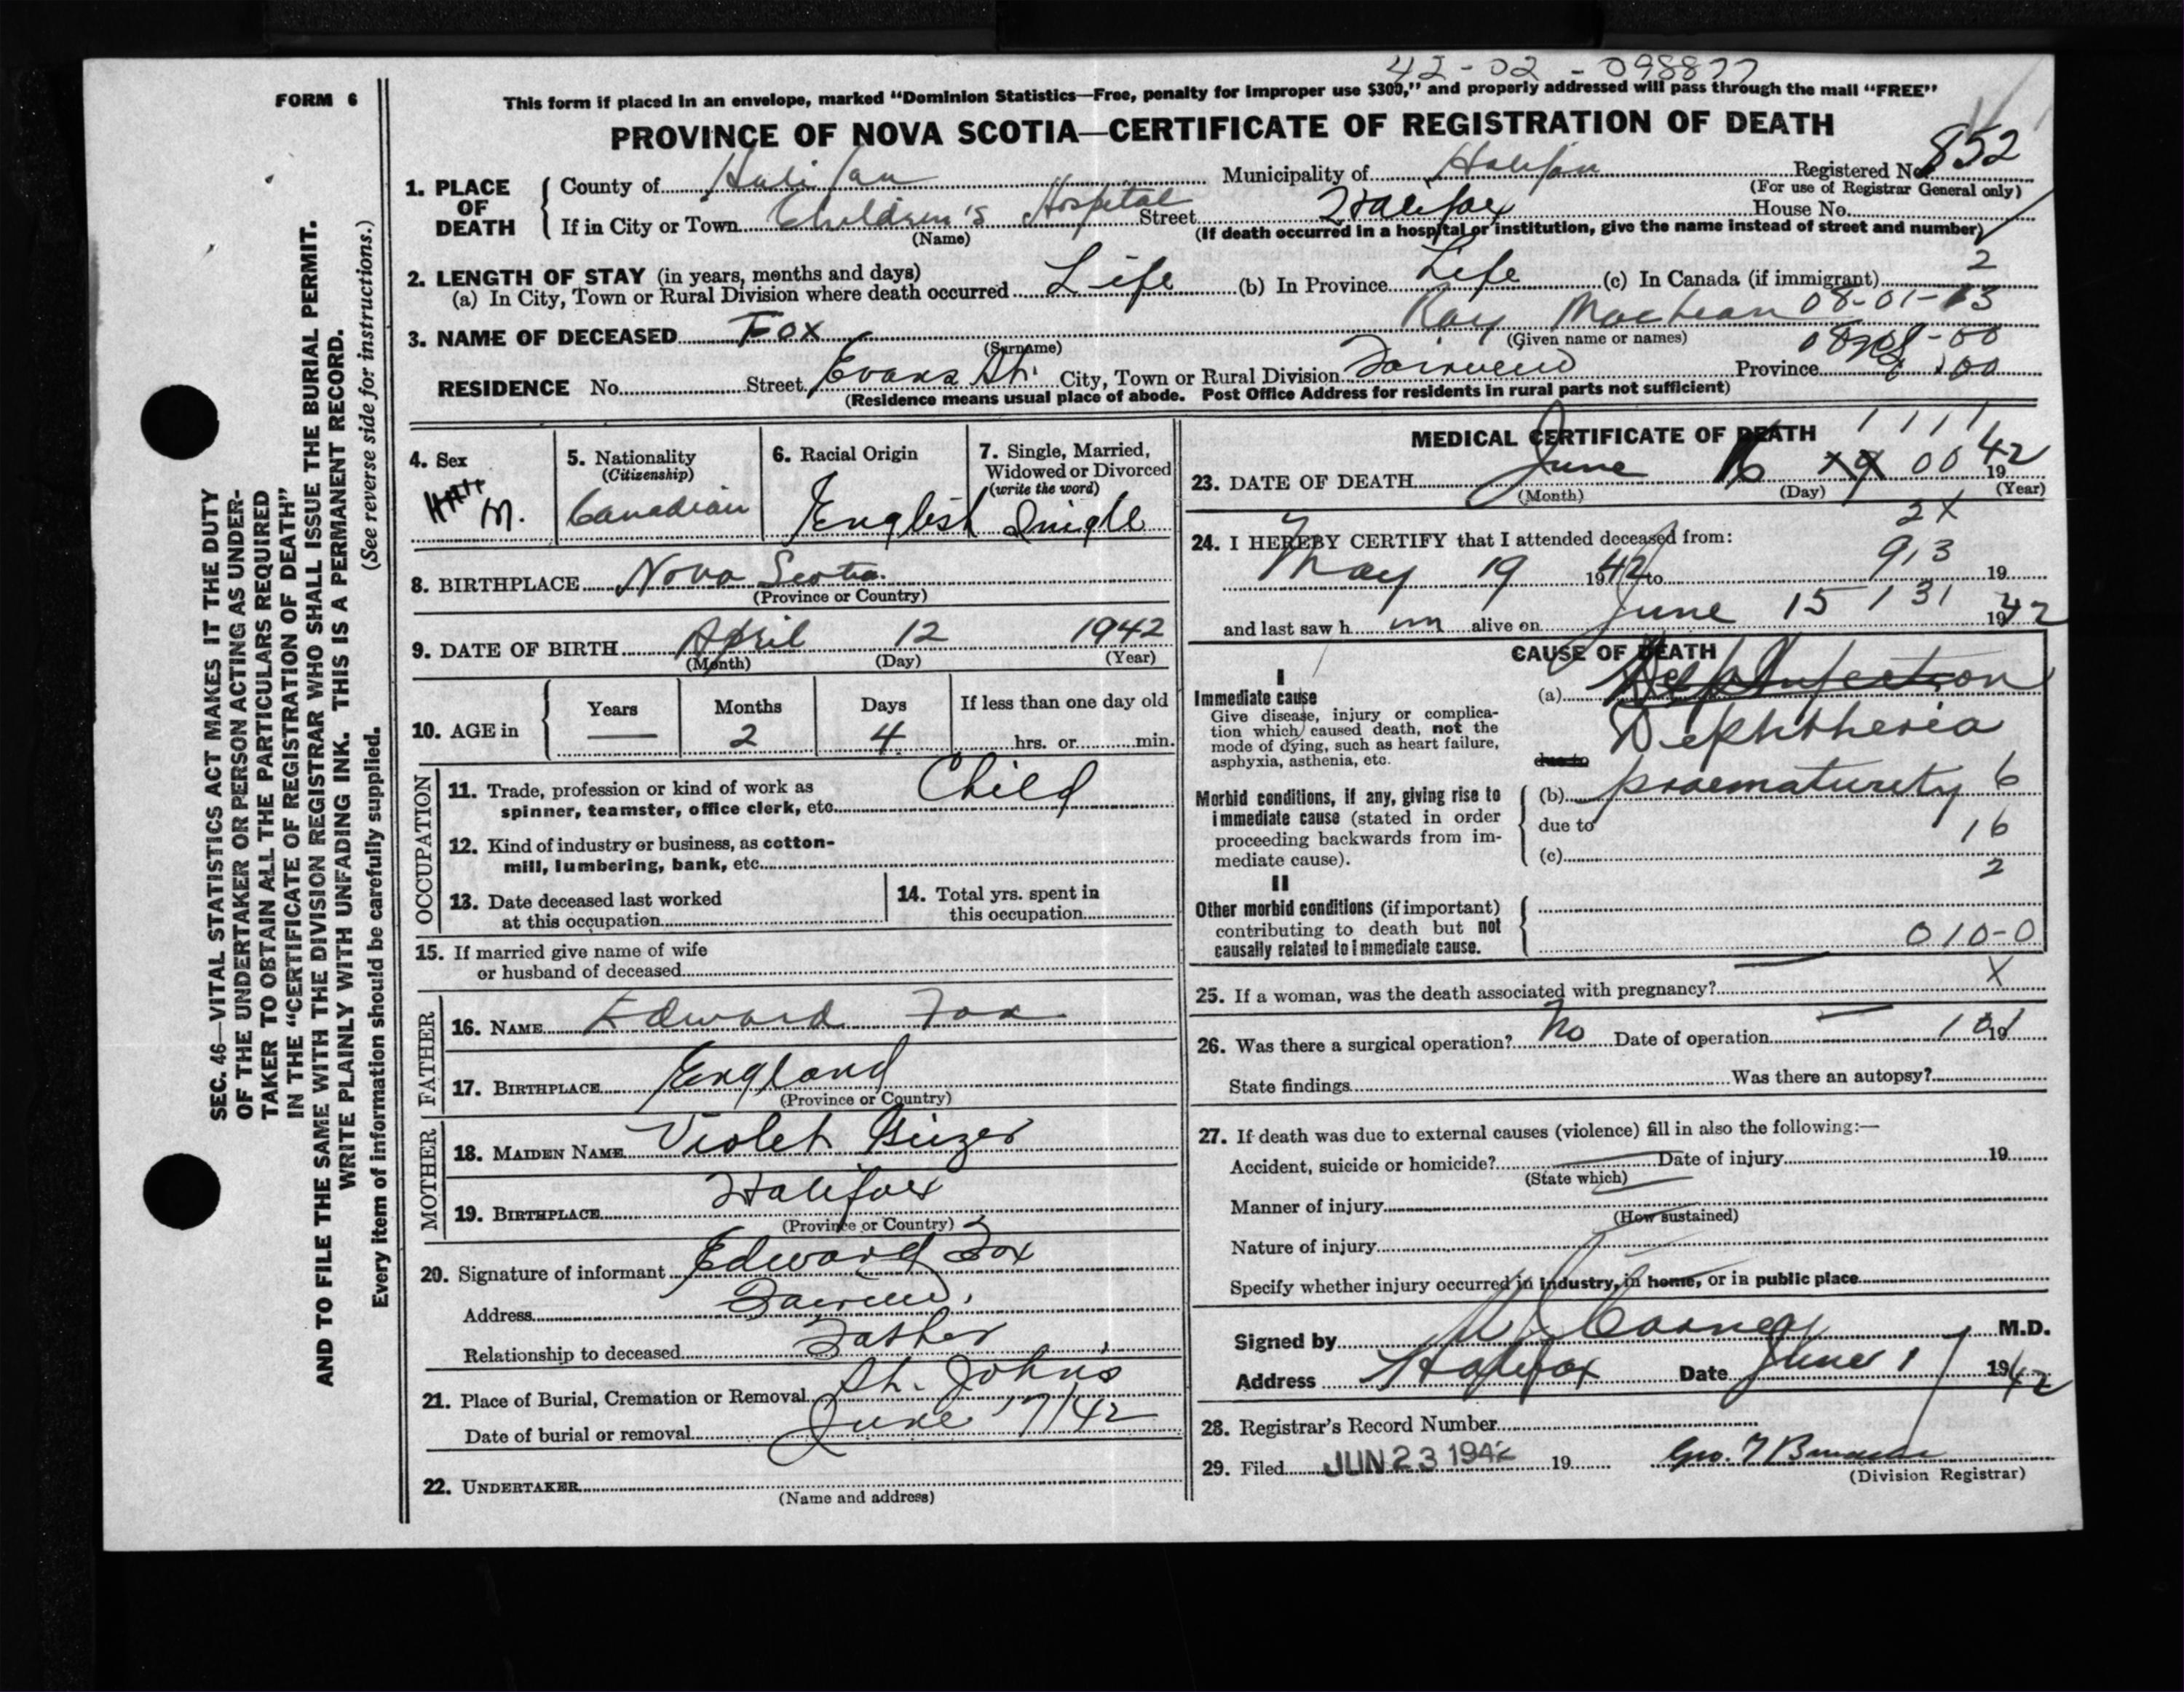 42-02-098877
FORM 6
This form if placed in an envelope, marked "Dominion Statistics—Free, penalty for improper use $300," and properly addressed will pass through the mail "FREE"
PROVINCE OF NOVA SCOTIA—CERTIFICATE OF REGISTRATION OF DEATH
1. PLACE OF DEATH County of Halifax Municipality of Halifax Registered No. 852
(For use of Registrar General only)
If in City or Town Children's Hospital Street Halifax House No.
(Name) (If death occurred in a hospital or institution, give the name instead of street and number)
2. LENGTH OF STAY (in years, months and days)
(a) In City, Town or Rural Division where death occurred Life (b) In Province Life (c) In Canada (if immigrant) 2
08-01-13
3. NAME OF DECEASED Fox Ray MacLean
(Surname) (Given name or names)
RESIDENCE No. Street Evans St. City, Town or Rural Division Fairview Province
(Residence means usual place of abode. Post Office Address for residents in rural parts not sufficient)
SEC. 46—VITAL STATISTICS ACT MAKES IT THE DUTY
OF THE UNDERTAKER OR PERSON ACTING AS UNDER-
TAKER TO OBTAIN ALL THE PARTICULARS REQUIRED
IN THE "CERTIFICATE OF REGISTRATION OF DEATH"
AND TO FILE THE SAME WITH THE DIVISION REGISTRAR WHO SHALL ISSUE THE BURIAL PERMIT.
WRITE PLAINLY WITH UNFADING INK. THIS IS A PERMANENT RECORD.
Every item of information should be carefully supplied. (See reverse side for instructions.)
4. Sex M.
5. Nationality (Citizenship) Canadian
6. Racial Origin English
7. Single, Married, Widowed or Divorced (write the word) Single
8. BIRTHPLACE Nova Scotia
(Province or Country)
9. DATE OF BIRTH April 12 1942
(Month) (Day) (Year)
10. AGE in Years — Months 2 Days 4 If less than one day old hrs. or min.
OCCUPATION
11. Trade, profession or kind of work as
spinner, teamster, office clerk, etc. Child
12. Kind of industry or business, as cotton-
mill, lumbering, bank, etc.
13. Date deceased last worked
at this occupation
14. Total yrs. spent in
this occupation
15. If married give name of wife
or husband of deceased
FATHER
16. NAME Edward Fox
17. BIRTHPLACE England
(Province or Country)
MOTHER
18. MAIDEN NAME Violet
19. BIRTHPLACE Halifax
(Province or Country)
20. Signature of informant Edward Fox
Address Fairview
Relationship to deceased Father
21. Place of Burial, Cremation or Removal St. Johns
Date of burial or removal June 17/42
22. UNDERTAKER
(Name and address)
MEDICAL CERTIFICATE OF DEATH
1 1 1 1
23. DATE OF DEATH June 16 00 1942
(Month) (Day) (Year)
2X
24. I HEREBY CERTIFY that I attended deceased from:
913
May 19 1942 to 19
131
and last saw h im alive on June 15 1942
CAUSE OF DEATH
I
Immediate cause
Give disease, injury or complica-
tion which caused death, not the
mode of dying, such as heart failure,
asphyxia, asthenia, etc.
(a)
Diphtheria
due to
Morbid conditions, if any, giving rise to
immediate cause (stated in order
proceeding backwards from im-
mediate cause).
(b) praematurity 6
due to 16
(c)
2
II
Other morbid conditions (if important)
contributing to death but not
causally related to immediate cause.
010-0
25. If a woman, was the death associated with pregnancy? X
26. Was there a surgical operation? No Date of operation 19
State findings Was there an autopsy?
27. If death was due to external causes (violence) fill in also the following:—
Accident, suicide or homicide? Date of injury 19
(State which)
Manner of injury
(How sustained)
Nature of injury
Specify whether injury occurred in industry, in home, or in public place
Signed by M.D.
Address Halifax Date June 17 1942
28. Registrar's Record Number
29. Filed JUN 23 1942 19 Geo.
(Division Registrar)